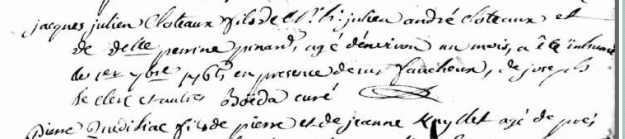 jacques julien Cloteaux fils de julien andré Cloteaux et
de delle perrine agé d'environ un mois, a été inhumé
le 1er 9bre 1765 en presence de Faucheux, de joseph
le clerc et autres Boëda curé
Pierre fils de pierre et de jeanne agé de